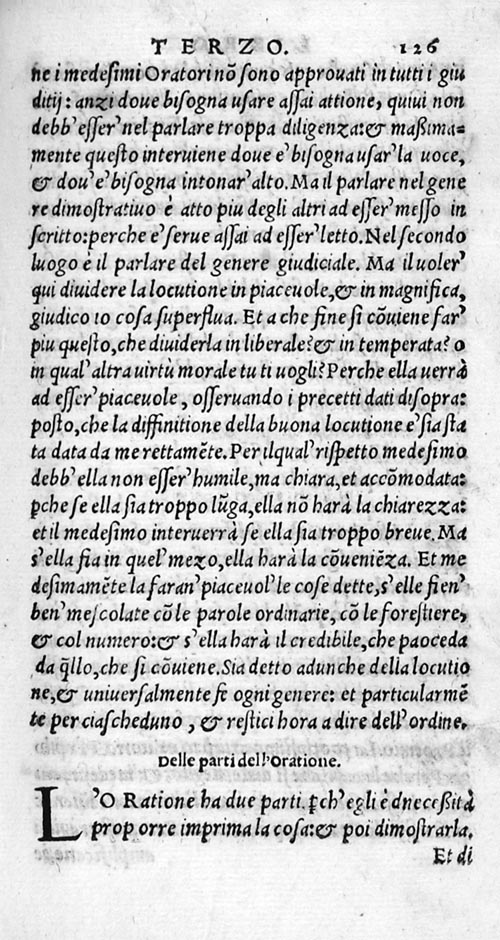 TERZO. 126
ne i medesimi Oratori nō sono approuati in tutti i giu
ditij: anzi doue bisogna usare assai attione, quiui non
debb' esser' nel parlare troppa diligenza: & maßima=
mente questo interuiene doue e' bisogna usar' la uoce,
& dou' e' bisogna intonar' alto. Ma il parlare nel gene
re dimostratiuo è atto piu degli altri ad esser' messo in
scritto: perche e' serue assai ad esser' letto. Nel secondo
luogo è il parlare del genere giudiciale. Ma il uoler'
qui diuidere la locutione in piaceuole, & in magnifica,
giudico io cosa superflua. Et a che fine si cōuiene far'
piu questo, che diuiderla in liberale? & in temperata? o
in qual' altra uirtù morale tu ti uogli? Perche ella uerrà
ad esser' piaceuole, osseruando i precetti dati disopra:
posto, che la diffinitione della buona locutione e' sia sta
ta data da me rettamēte. Per ilqual' rispetto medesimo
debb' ella non esser' humile, ma chiara, et accōmodata:
ꝑche se ella sia troppo lūga, ella nō harà la chiarezza:
et il medesimo interuerrà se ella sia troppo breue. Ma
s'ella fia in quel' mezo, ella harà la cōueniēza. Et me
desimamēte la faran' piaceuol' le cose dette, s'elle fien'
ben' mescolate cō le parole ordinarie, cō le forestiere,
& col numero: & s'ella harà il credibile, che paoceda
da q̄llo, che si cōuiene. Sia detto adunche della locutio
ne, & uniuersalmente fe ogni genere: et particularmē
te per ciascheduno, & restici hora a dire dell' ordine.
Delle parti dell'Oratione.
L'O Ratione ha due parti. ꝑch' egli è dnecessità
prop orre imprima la cosa: & poi dimostrarla.
Et di